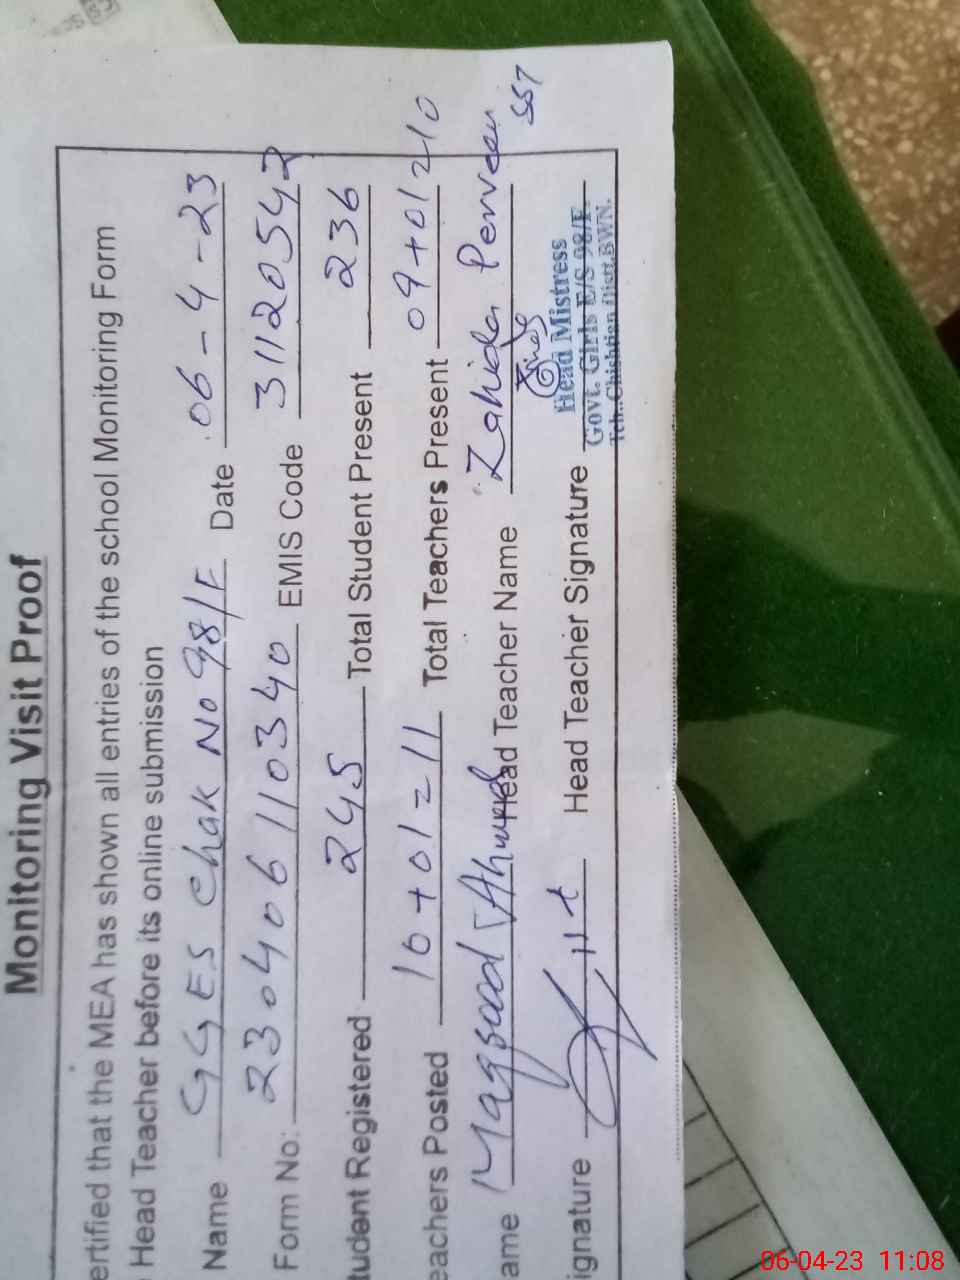 Monitoring Visit Proof
ertified that the MEA has shown all entries of the school Monitoring Form
Head Teacher before its online submission
Name GGES Chak No 98/F Date 06-4-23
Form No: 230406110340 EMIS Code 31120542
tudent Registered 245 Total Student Present 236
eachers Posted 10+01=11 Total Teachers Present 09+01=10
ame Maqsood Ahmed Head Teacher Name Zahida Perveen SST
ignature Head Teacher Signature
Head Mistress
Govt. Girls E/S 98/F.
Teh. Chishtian Distt.BWN.
06-04-23 11:08